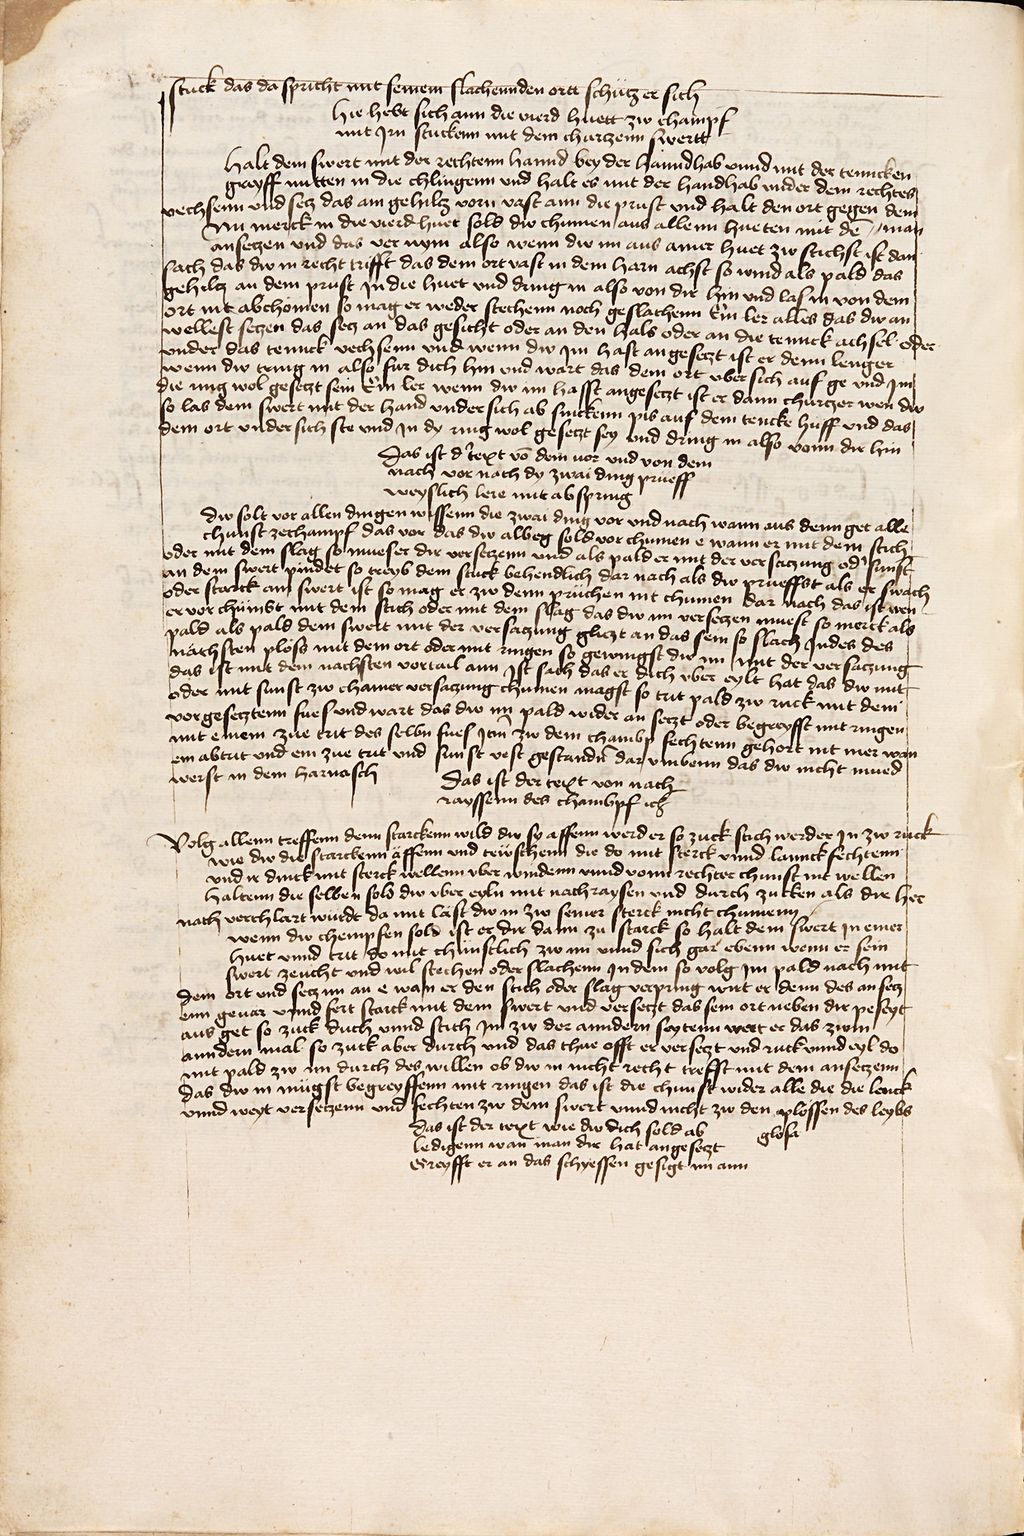 stuck das da spricht mit seinem slachennden ortt schütz er sich
Hie hebt sich ann die vierd huett zw champf
mit Irn stuckenn mit dem churtzenn swertt
Halt dein swert mit der rechtenn hannd bey der hanndhab unnd mit der tenncken
greyff mitten in die chlingenn und halt es mit der handhab under dem rechtes
uechsenn und setz das am gehiltz vorn vast ann die prust und halt den ort gegen dem man
Nu merck in die vierd huet sold dw chumen aus allenn hueten mit dē
ansetzen und das ver nym also wenn dw im aus ainer huet zw stichst ist dan
sach das dw in recht trifft das dein ort vast in dem harnachst so wind als pald das
gehiltz an dein prust In die huet und dring in also von dir hin und las in von dem
ort nit abchomen so mag er weder stechenn noch geslachenn Ein ler alles das dw an
wellest setzen das setz an das gesicht oder an den hals oder an die tennck achsel oder
under das tennck uechsenn und wenn dw Im hast angesetzt ist er denn lenger
wenn dw tring in also fur dich hin und wart das dein ort ubersich auf ge und Im
die ring wol gesetzt sein Ein ler wenn dw im hasst angesetzt ist er dann churtzer wen dw
so las dein swert mit der hand undersich ab sinckenn pis auf dein tencke huff und das
dein ort undersich ste und In dy ring wol gesetzt sey und dring in also vonn dir hin
Das ist d' text vō dem vor und von dem
nach vor nach dy zwai ding prueff
weyslich lere mit abspring
dw solt vor allen dingen wissenn die zwai ding vor und nach wann aus denn get alle
chunst zechampf das vor das dw albeg sold vorchumen e wann er mit dem stich
oder mit dem slag so mueser dir versetzenn und als pald er mit der versatzung od' sunst
an dem swert pindet so treyb dein stuck behendlich dar nach als dw prueffst als er swach
oder starck am swert ist so mag er zw denn prüchen nit chumen Dar nach das ist wen
er vor chümbt mit dem stich oder mit dem slag das dw im versetzen muest so merck als
pald als pald dein swert mit der versatzung glitzt an das sein so slach Indes des
nachsten plöss mit dem ort oder mit ringen so gewingst dw im mit der versatzung
das ist mit dem nachsten vortail ann Ist sach das er dich uber eylt hat das dw mit
oder mit sunst zw chainer versatzung chumen magst so trit pald zw ruck mit dem
vorgesetztenn fues und wart das dw im pald wider an setzt oder begreyfft mit ringen
mit einem zue trit des selbn fues Itm zw dem chambpfechtenn gehort nit mer wan
ein abtrit und ein zue trit und sunst vest gestandn dar umbenn das dw nicht mued
werst in dem harnasch
Das ist der text von nach
rayssenn des chambpf ich
Volg allenn treffenn denn starckenn wild dw sy affenn werd er so zuck stich werder In zw ruck
wie dw die starckenn äffenn und teuschenn die do mit sterck unnd lannck fechtenn
und ir druck mit sterck wellenn uber windenn unnd vonn rechter chunst nit wellen
haltenn die selben sold dw uber eyln mit nachraysen und durch zucken als dir her
nach verchlart wurdt da mit last dw in zw seiner sterck nicht chumenn
wenn dw chempfen sold ist er dir dann zu starck so halt dein swert In einer
huet unnd trit do mit chünstlich zw im unnd sich gar ebenn wenn er sein
swert zeucht und wil stechen oder slachenn Indem so volg Im pald nach mit
dem ort und setz im an e wan er den stich oder slag verpring wirt er denn des an setz
enn gewar unnd fert starck mit dem swert und versetzt das sein ort neben dir peseyt
aus get so zuck duch unnd stich Im zw der anndern seytenn wert er das zwm
anndern mal so zuck aber durch und das thue offt er versetzt und ruck unnd eyl do
mit pald zw im durch des willen ob dw in nicht recht trefft mit dem ansetzenn
das dw in mügst begreyffenn mit ringen das ist die chunst wider alle die die lenck
unnd weyt versetzenn und fechten zw dem swert unnd nicht zw den plössen des leybs
Das ist der text wie dw dich sold ab
ledigenn wan man dir hat angesetzt
glosa
Greyfft er an das schyessen gesigt im ann